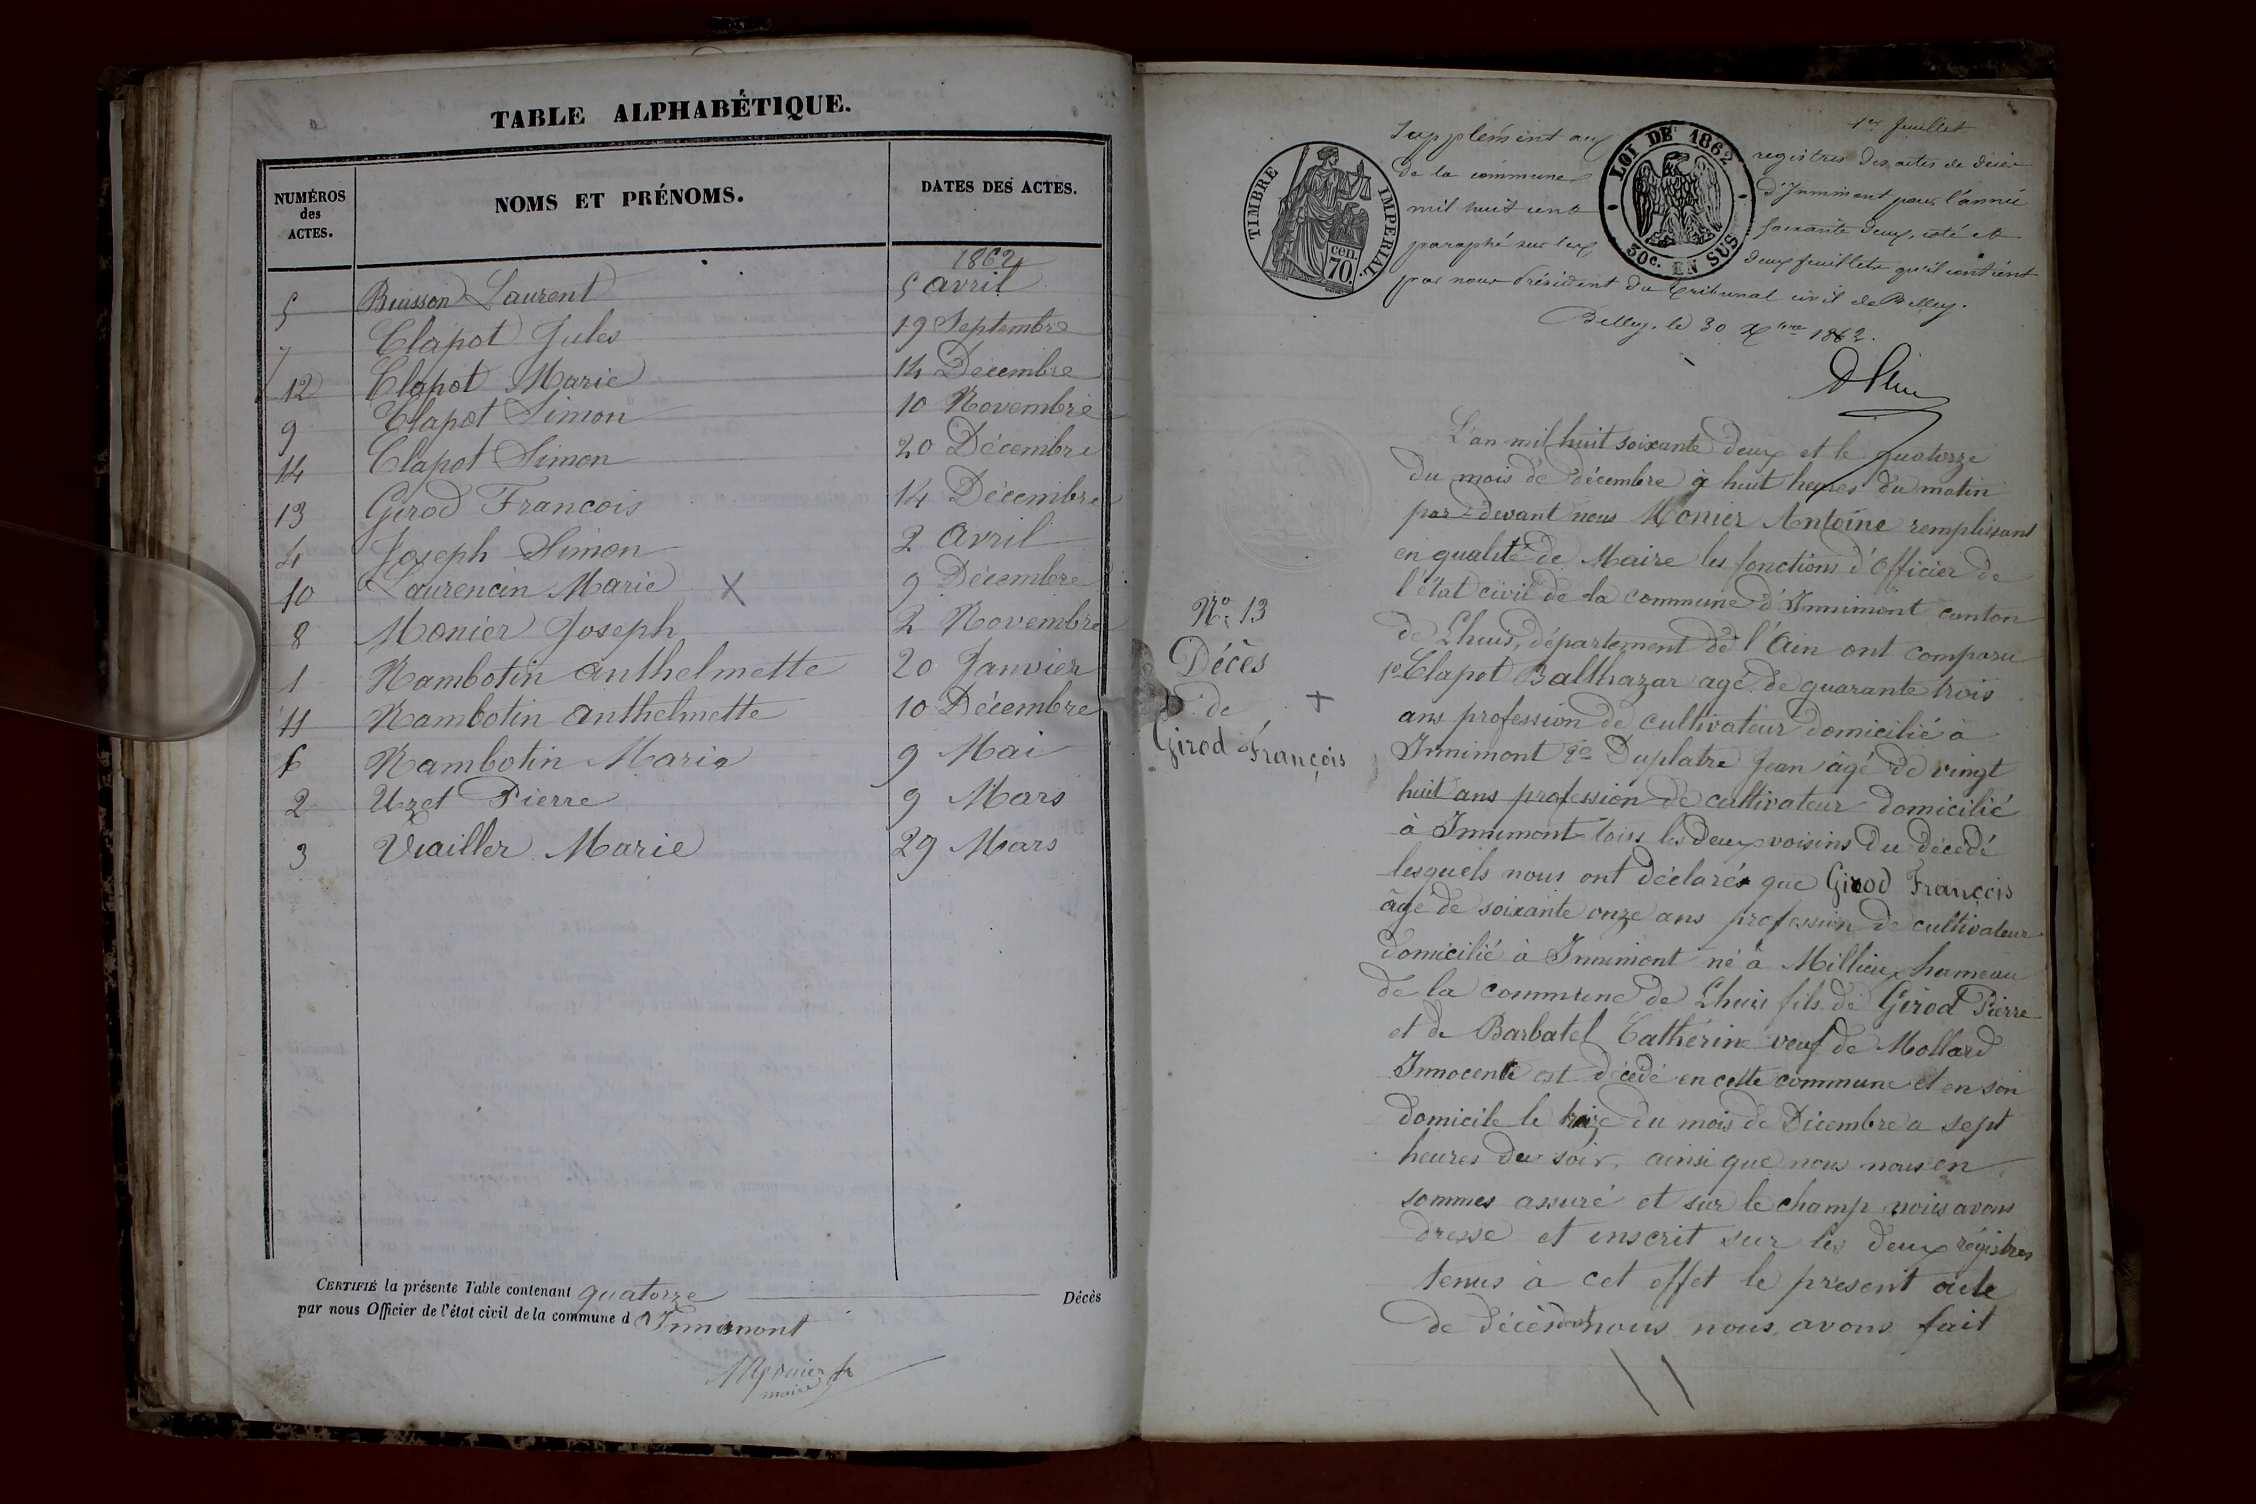 TABLE ALPHABÉTIQUE.
NUMÉROS des ACTES. NOMS ET PRÉNOMS. DATES DES ACTES.
1862
5 Buisson Laurent 5 avril
7 Clapot Jules 19 Septembre
12 Clapot Marie 14 Décembre
9 Clapot Simon 10 Novembre
14 Clapot Simon 20 Décembre
13 Girod Francois 14 Décembre
4 Joseph Simon 2 avril
10 Laurencin Marie X 9 Décembre
8 Monier Joseph 2 Novembre
1 Rambotin anthelmette 20 Janvier
11 Rambotin anthelmette 10 Décembre
6 Rambotin Marie 9 Mai
2 Uzet Pierre 9 Mars
3 Vuailler Marie 29 Mars
CERTIFIÉ la présente Table contenant quatorze Décès
par nous Officier de l'état civil de la commune d'Innimont
Monier
maire
1er feuillet
TIMBRE IMPERIAL
70 cen.
LOI DE 1862
30c. EN SUS
Supplément aux registres des actes de décès
de la commune d'Innimont pour l'année
mil huit cent soixante deux, coté et
paraphé sur les deux feuillets qu'il contient
par nous Président du tribunal civil de Belley.
Belley, le 30 Xbre 1862.
L'an mil huit soixante deux et le quatorze
du mois de décembre à huit heures du matin
par devant nous Monier Antoine remplissant
en qualité de Maire les fonctions d'Officier de
l'état civil de la commune d'Innimont canton
de Lhuis, département de l'Ain ont comparu
1o Clapot Balthazar agé de quarante trois
ans profession de cultivateur domicilié à
Innimont 2o Duplatre Jean âgé de vingt
huit ans profession de cultivateur domicilié
à Innimont tous les deux voisins du décédé
lesquels nous ont déclarés que Girod François
âgé de soixante onze ans profession de cultivateur
domicilié à Innimont né à Millieu hameau
de la commune de Lhuis fils de Girod Pierre
et de Barbatel Cathérine veuf de Mollard
Innocente est décédé en cette commune et en son
domicile le treize du mois de Décembre a sept
heures du soir, ainsi que nous nous en
sommes assuré et sur le champ nous avons
dressé et inscrit sur les deux régistres
tenus à cet effet le present acte
de décès dont nous nous avons fait
No 13
Décès
de +
Girod François